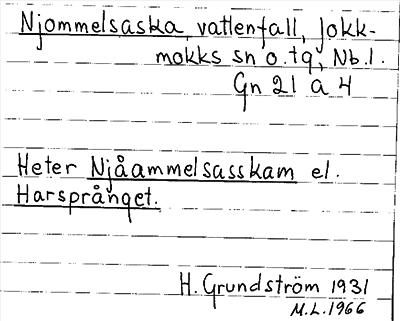 Njommelsaska, vattenfall, Jokk-
mokks sn o. tg, Nb.l.
Gn 21 a 4
Heter Njåammelsasskam el.
Harsprånget.
H. Grundström 1931
M.L. 1966